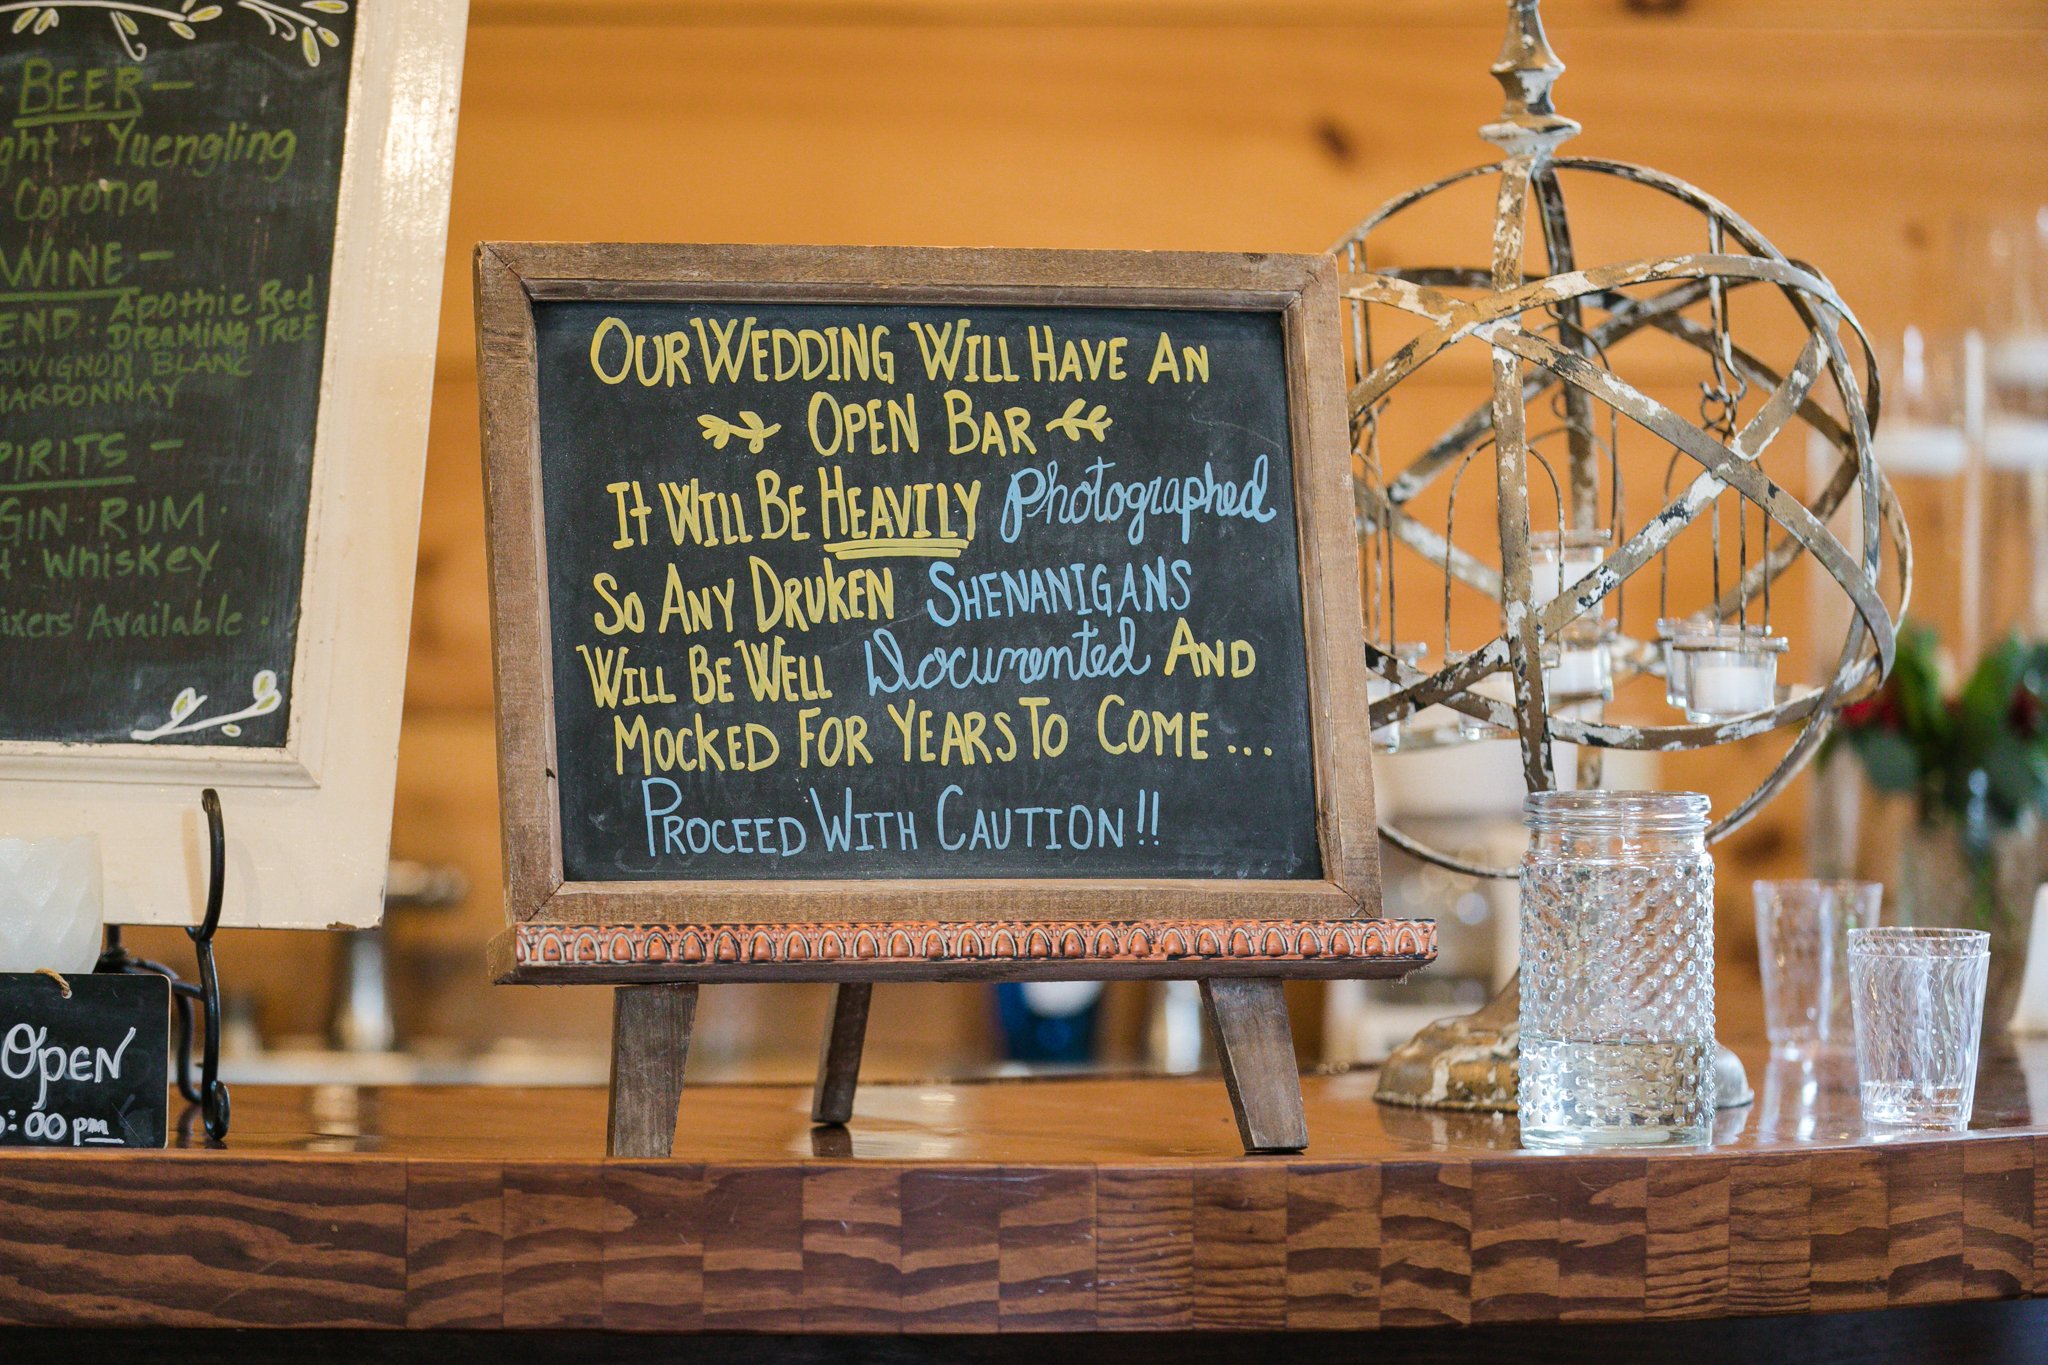 BEER -
Yuengling
Corona
WINE -
Apothic Red
Dreaming TREE
BLANC
SPIRITS -
GIN · RUM ·
Whiskey
Available ·
OPEN
:00 pm
OUR WEDDING WILL HAVE AN
OPEN BAR
It WILL BE HEAVILY Photographed
SO ANY DRUKEN SHENANIGANS
WILL BE WELL Documented AND
MOCKED FOR YEARS TO COME...
PROCEED WITH CAUTION!!